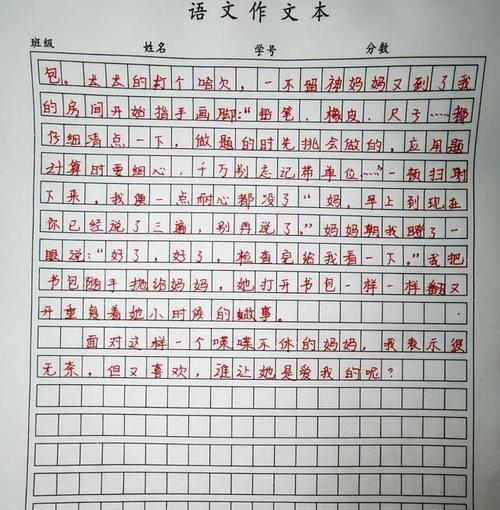 语文作文本
班级 姓名 学号 分数
包。大大的打个哈欠，一不留神妈妈又到了我
的房间开始指手画脚:“铅笔、橡皮、尺子……都
仔细清点一下，做题的时先挑会做的，应用题
计算时要细心，千万别忘记带单位……”一顿扫射
下来。我便一点耐心都没了“妈，早上到现在
你已经说了三遍，别再说了。”妈妈朝我瞪了一
眼说:“好了，好了，检查完给我看一下。”我把
书包随手抛给妈妈，她打开书包一样一样翻又
开重复着她小时候的故事。
面对这样一个喋喋不休的妈妈，我表示很
无奈，但又喜欢，谁让她是爱我的呢?